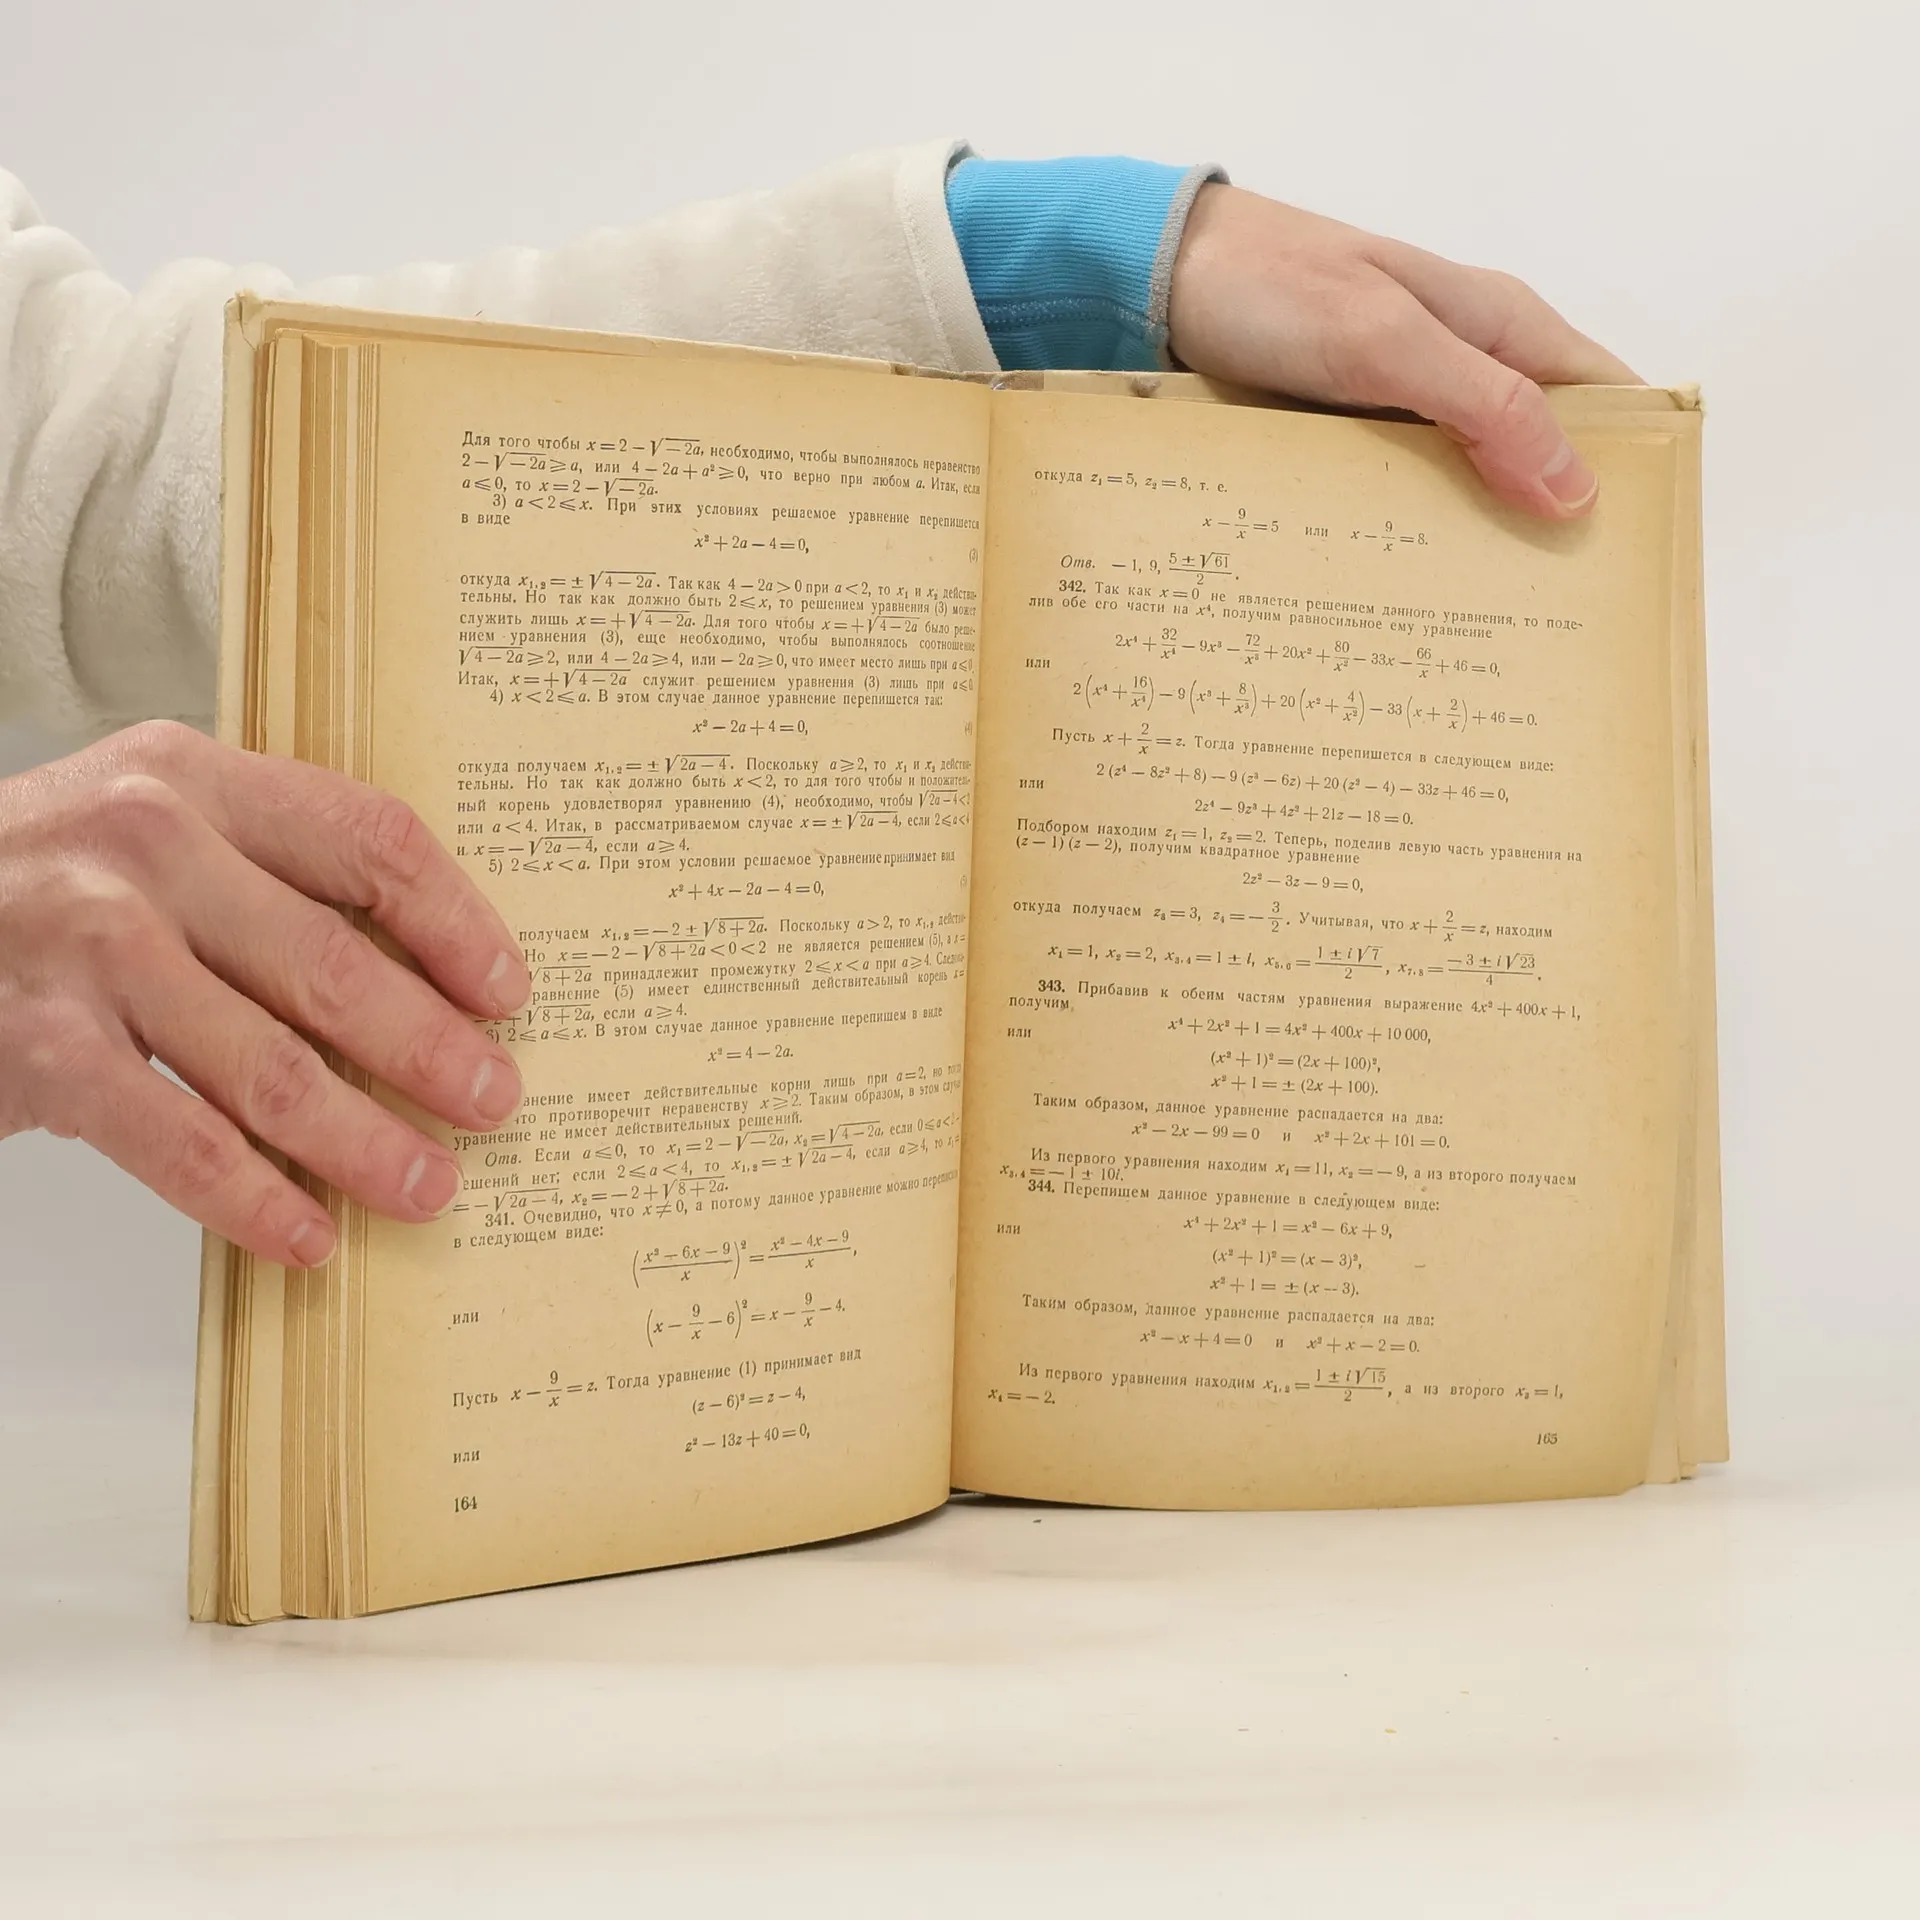 Для того чтобы x = 2 − √−2a, необходимо, чтобы выполнялось неравенство
2 − √−2a ⩾ a, или 4 − 2a + a² ⩾ 0, что верно при любом a. Итак, если
a ⩽ 0, то x = 2 − √−2a.
3) a < 2 ⩽ x. При этих условиях решаемое уравнение перепишется
в виде
x² + 2a − 4 = 0, (3)
откуда x₁,₂ = ± √4 − 2a. Так как 4 − 2a > 0 при a < 2, то x₁ и x₂ действи-
тельны. Но так как должно быть 2 ⩽ x, то решением уравнения (3) может
служить лишь x = + √4 − 2a. Для того чтобы x = + √4 − 2a было реше-
нием уравнения (3), еще необходимо, чтобы выполнялось соотношение
√4 − 2a ⩾ 2, или 4 − 2a ⩾ 4, или − 2a ⩾ 0, что имеет место лишь при a ⩽ 0.
Итак, x = + √4 − 2a служит решением уравнения (3) лишь при a ⩽ 0
4) x < 2 ⩽ a. В этом случае данное уравнение перепишется так:
x² − 2a + 4 = 0, (4)
откуда получаем x₁,₂ = ± √2a − 4. Поскольку a ⩾ 2, то x₁ и x₂ действи-
тельны. Но так как должно быть x < 2, то для того чтобы и положитель-
ный корень удовлетворял уравнению (4), необходимо, чтобы √2a − 4 < 2
или a < 4. Итак, в рассматриваемом случае x = ± √2a − 4, если 2 ⩽ a < 4
и x = − √2a − 4, если a ⩾ 4.
5) 2 ⩽ x < a. При этом условии решаемое уравнение принимает вид
x² + 4x − 2a − 4 = 0, (5)
получаем x₁,₂ = − 2 ± √8 + 2a. Поскольку a > 2, то x₁,₂ действи-
Но x = − 2 − √8 + 2a < 0 < 2 не является решением (5), а x =
√8 + 2a принадлежит промежутку 2 ⩽ x < a при a ⩾ 4. Следо-
равнение (5) имеет единственный действительный корень x =
− 2 + √8 + 2a, если a ⩾ 4.
6) 2 ⩽ a ⩽ x. В этом случае данное уравнение перепишем в виде
x² = 4 − 2a.
внение имеет действительные корни лишь при a = 2, но
что противоречит неравенству x ⩾ 2. Таким образом, в этом случае
уравнение не имеет действительных решений.
Отв. Если a ⩽ 0, то x₁ = 2 − √−2a, x₂ = √4 − 2a, если 0 ⩽ a < 2 −
ешений нет; если 2 ⩽ a < 4, то x₁,₂ = ± √2a − 4, если a ⩾ 4, то x₁ =
= − √2a − 4, x₂ = − 2 + √8 + 2a.
341. Очевидно, что x ≠ 0, а потому данное уравнение можно переписать
в следующем виде:
((x² − 6x − 9)/x)² = (x² − 4x − 9)/x,
или
(x − 9/x − 6)² = x − 9/x − 4.
Пусть x − 9/x = z. Тогда уравнение (1) принимает вид
(z − 6)² = z − 4,
или
z² − 13z + 40 = 0,
164
откуда z₁ = 5, z₂ = 8, т. е.
x − 9/x = 5 или x − 9/x = 8.
Отв. − 1, 9, (5 ± √61)/2.
342. Так как x = 0 не является решением данного уравнения, то поде-
лив обе его части на x⁴, получим равносильное ему уравнение
2x⁴ + 32/x⁴ − 9x³ − 72/x³ + 20x² + 80/x² − 33x − 66/x + 46 = 0,
или
2 (x⁴ + 16/x⁴) − 9 (x³ + 8/x³) + 20 (x² + 4/x²) − 33 (x + 2/x) + 46 = 0.
Пусть x + 2/x = z. Тогда уравнение перепишется в следующем виде:
2 (z⁴ − 8z² + 8) − 9 (z³ − 6z) + 20 (z² − 4) − 33z + 46 = 0,
или
2z⁴ − 9z³ + 4z² + 21z − 18 = 0.
Подбором находим z₁ = 1, z₂ = 2. Теперь, поделив левую часть уравнения на
(z − 1) (z − 2), получим квадратное уравнение
2z² − 3z − 9 = 0,
откуда получаем z₃ = 3, z₄ = − 3/2. Учитывая, что x + 2/x = z, находим
x₁ = 1, x₂ = 2, x₃,₄ = 1 ± i, x₅,₆ = (1 ± i√7)/2, x₇,₈ = (− 3 ± i√23)/4.
343. Прибавив к обеим частям уравнения выражение 4x² + 400x + 1,
получим
x⁴ + 2x² + 1 = 4x² + 400x + 10 000,
или
(x² + 1)² = (2x + 100)²,
x² + 1 = ± (2x + 100).
Таким образом, данное уравнение распадается на два:
x² − 2x − 99 = 0 и x² + 2x + 101 = 0.
Из первого уравнения находим x₁ = 11, x₂ = − 9, а из второго получаем
x₃,₄ = − 1 ± 10i.
344. Перепишем данное уравнение в следующем виде:
x⁴ + 2x² + 1 = x² − 6x + 9,
или
(x² + 1)² = (x − 3)²,
x² + 1 = ± (x − 3).
Таким образом, данное уравнение распадается на два:
x² − x + 4 = 0 и x² + x − 2 = 0.
Из первого уравнения находим x₁,₂ = (1 ± i√15)/2, а из второго x₃ = 1,
x₄ = − 2.
165